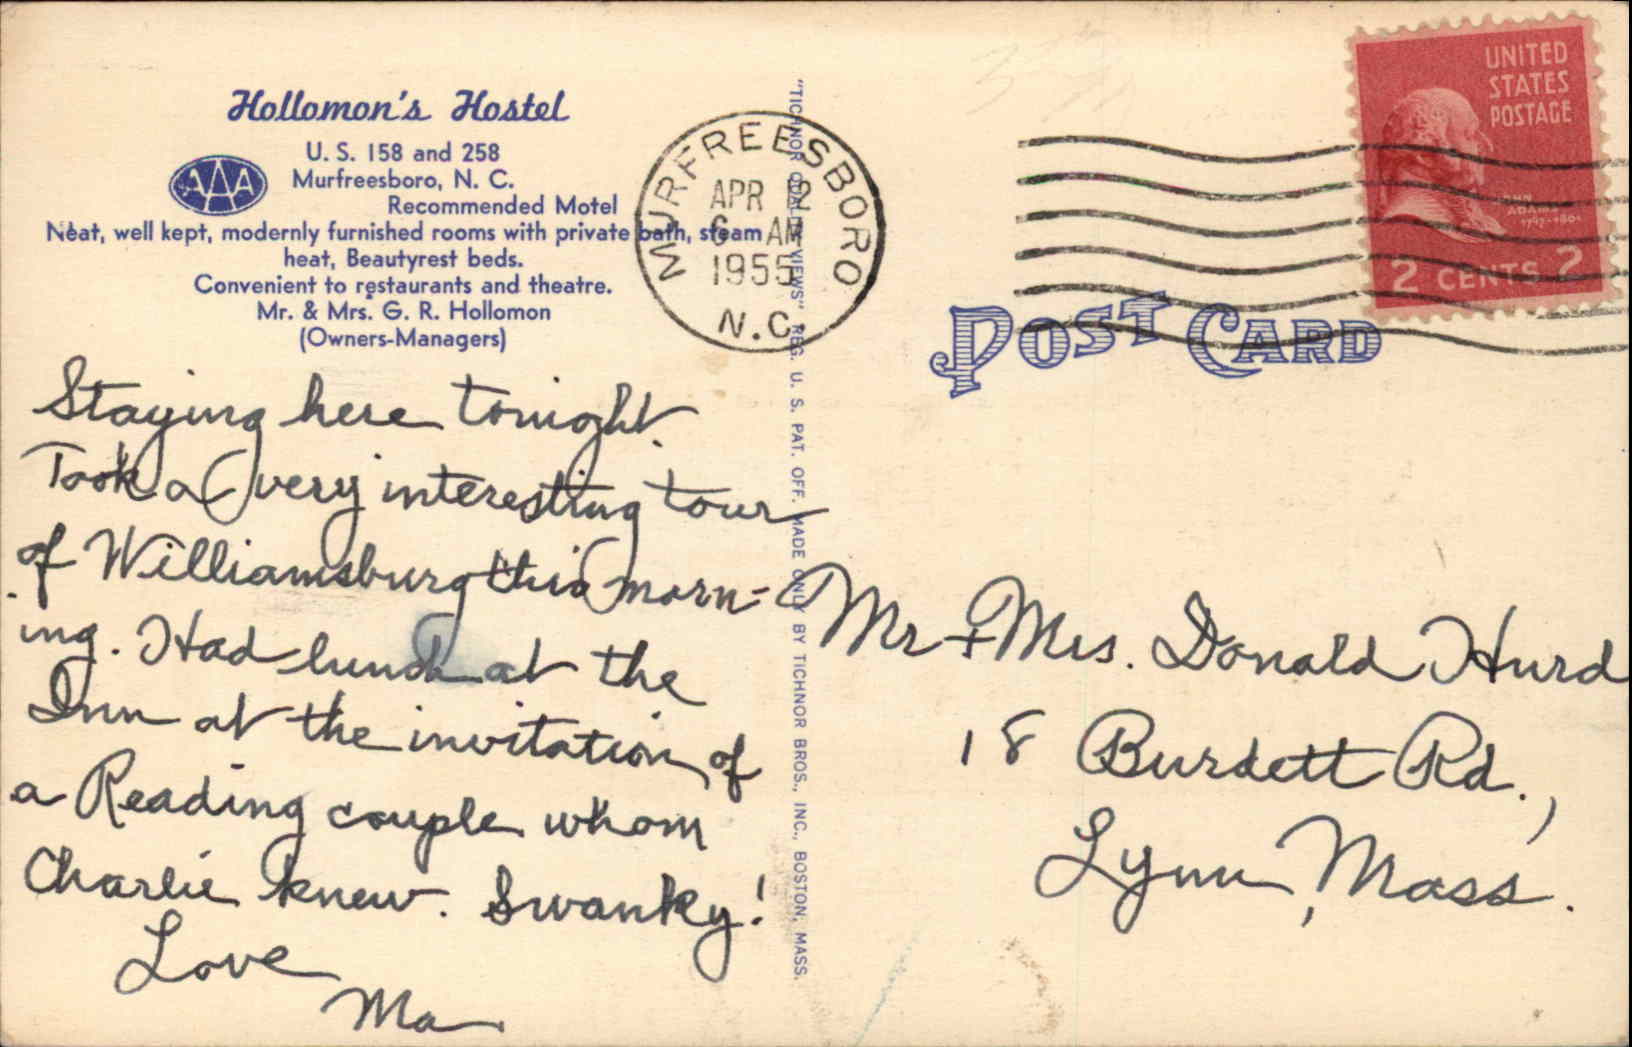 Hollomon's Hostel
U. S. 158 and 258
AAA
Murfreesboro, N. C.
Recommended Motel
Neat, well kept, modernly furnished rooms with private bath, steam
heat, Beautyrest beds.
Convenient to restaurants and theatre.
Mr. & Mrs. G. R. Hollomon
(Owners-Managers)
Staying here tonight.
Took a very interesting tour
of Williamsburg this morn-
ing. Had lunch at the
Inn at the invitation of
a Reading couple whom
Charlie knew. Swanky!
Love
Ma
"TICHNOR QUALITY VIEWS" REG. U. S. PAT. OFF. MADE ONLY BY TICHNOR BROS., INC., BOSTON, MASS.
MURFREESBORO
APR 2
6 AM
1955
N.C.
UNITED
STATES
POSTAGE
JOHN
ADAMS
1797-1801
2 CENTS 2
POST CARD
Mr + Mrs. Donald Hurd
18 Burdett Rd.,
Lynn, Mass.